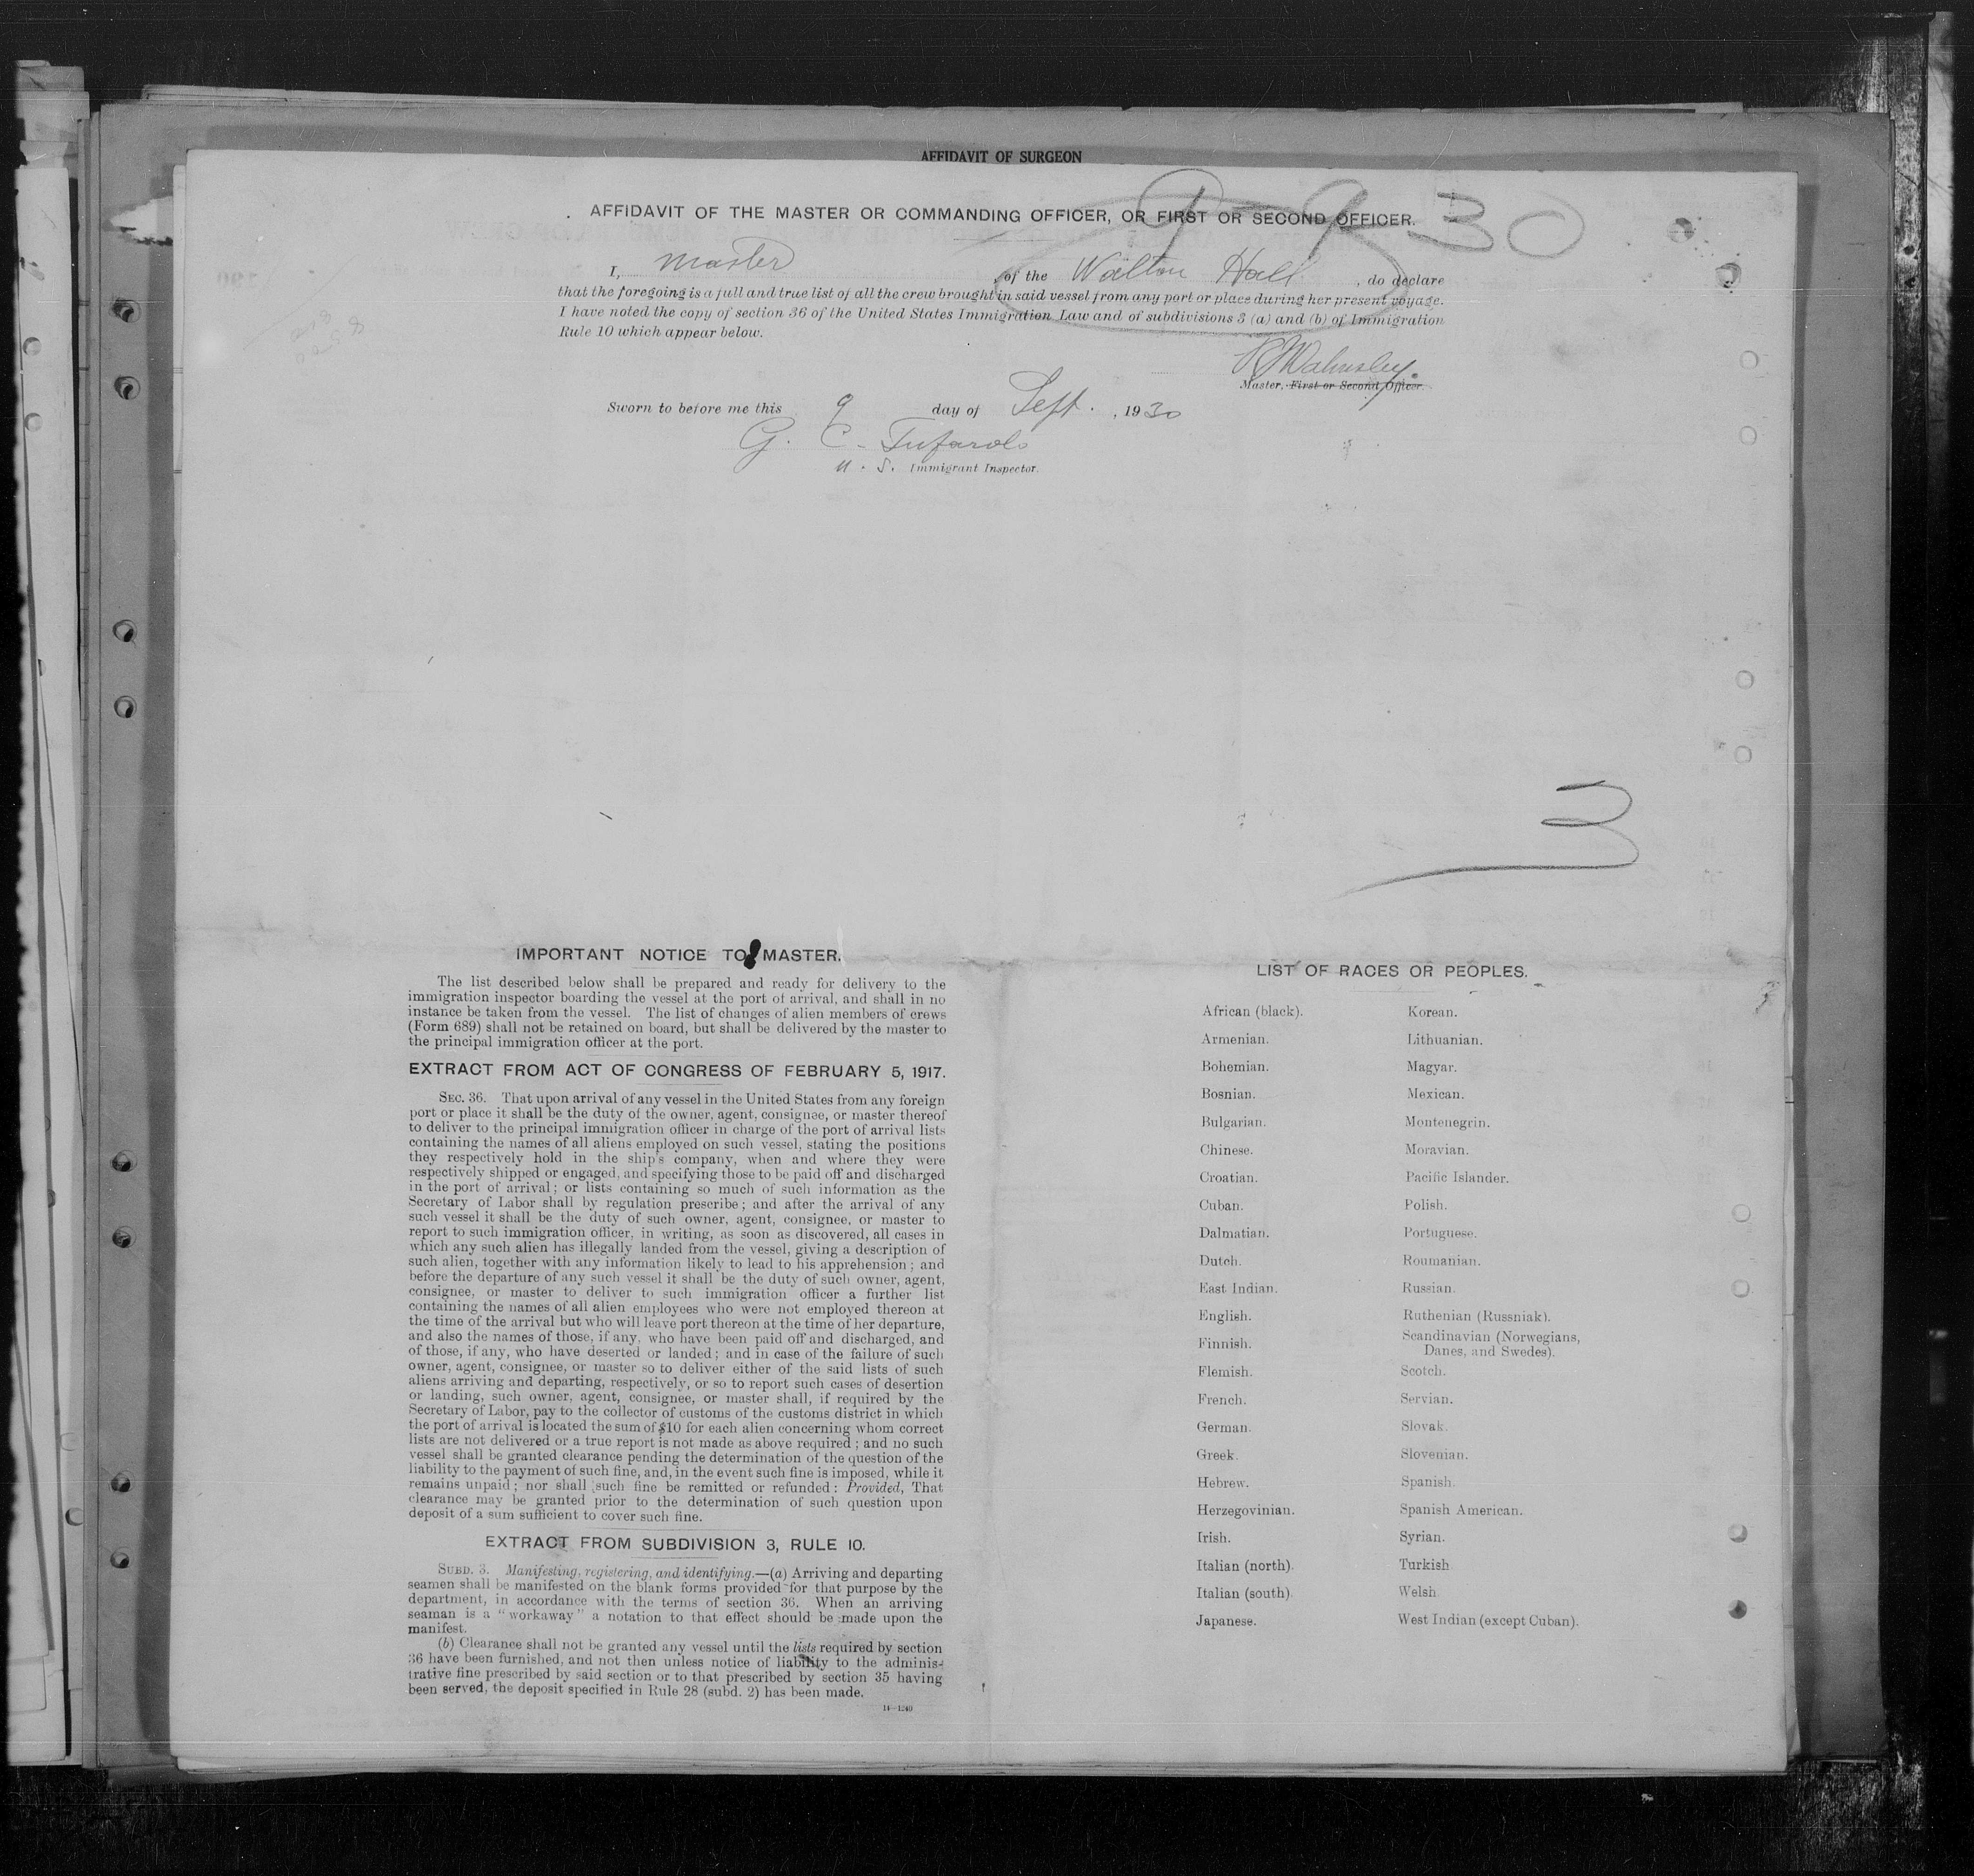 AFFIDAVIT OF SURGEON
AFFIDAVIT OF THE MASTER OR COMMANDING OFFICER, OR FIRST OR SECOND OFFICER.
9-9 30
I, Master, of the Walton Hall, do declare
that the foregoing is a full and true list of all the crew brought in said vessel from any port or place during her present voyage.
I have noted the copy of section 36 of the United States Immigration Law and of subdivisions 3 (a) and (b) of Immigration
Rule 10 which appear below.
Walmsley.
Master, First or Second Officer.
Sworn to before me this 9 day of Sept., 1930
G. C. Tufarolo
U. S. Immigrant Inspector.
3
IMPORTANT NOTICE TO MASTER.
The list described below shall be prepared and ready for delivery to the
immigration inspector boarding the vessel at the port of arrival, and shall in no
instance be taken from the vessel. The list of changes of alien members of crews
(Form 689) shall not be retained on board, but shall be delivered by the master to
the principal immigration officer at the port.
EXTRACT FROM ACT OF CONGRESS OF FEBRUARY 5, 1917.
SEC. 36. That upon arrival of any vessel in the United States from any foreign
port or place it shall be the duty of the owner, agent, consignee, or master thereof
to deliver to the principal immigration officer in charge of the port of arrival lists
containing the names of all aliens employed on such vessel, stating the positions
they respectively hold in the ship's company, when and where they were
respectively shipped or engaged, and specifying those to be paid off and discharged
in the port of arrival; or lists containing so much of such information as the
Secretary of Labor shall by regulation prescribe; and after the arrival of any
such vessel it shall be the duty of such owner, agent, consignee, or master to
report to such immigration officer, in writing, as soon as discovered, all cases in
which any such alien has illegally landed from the vessel, giving a description of
such alien, together with any information likely to lead to his apprehension; and
before the departure of any such vessel it shall be the duty of such owner, agent,
consignee, or master to deliver to such immigration officer a further list
containing the names of all alien employees who were not employed thereon at
the time of the arrival but who will leave port thereon at the time of her departure,
and also the names of those, if any, who have been paid off and discharged, and
of those, if any, who have deserted or landed; and in case of the failure of such
owner, agent, consignee, or master so to deliver either of the said lists of such
aliens arriving and departing, respectively, or so to report such cases of desertion
or landing, such owner, agent, consignee, or master shall, if required by the
Secretary of Labor, pay to the collector of customs of the customs district in which
the port of arrival is located the sum of $10 for each alien concerning whom correct
lists are not delivered or a true report is not made as above required; and no such
vessel shall be granted clearance pending the determination of the question of the
liability to the payment of such fine, and, in the event such fine is imposed, while it
remains unpaid; nor shall such fine be remitted or refunded: Provided, That
clearance may be granted prior to the determination of such question upon
deposit of a sum sufficient to cover such fine.
EXTRACT FROM SUBDIVISION 3, RULE 10.
SUBD. 3. Manifesting, registering, and identifying.—(a) Arriving and departing
seamen shall be manifested on the blank forms provided for that purpose by the
department, in accordance with the terms of section 36. When an arriving
seaman is a "workaway" a notation to that effect should be made upon the
manifest.
(b) Clearance shall not be granted any vessel until the lists required by section
36 have been furnished, and not then unless notice of liability to the adminis-
trative fine prescribed by said section or to that prescribed by section 35 having
been served, the deposit specified in Rule 28 (subd. 2) has been made.
14—1240
LIST OF RACES OR PEOPLES.
African (black).
Armenian.
Bohemian.
Bosnian.
Bulgarian.
Chinese.
Croatian.
Cuban.
Dalmatian.
Dutch.
East Indian.
English.
Finnish.
Flemish.
French.
German.
Greek.
Hebrew.
Herzegovinian.
Irish.
Italian (north).
Italian (south).
Japanese.
Korean.
Lithuanian.
Magyar.
Mexican.
Montenegrin.
Moravian.
Pacific Islander.
Polish.
Portuguese.
Roumanian.
Russian.
Ruthenian (Russniak).
Scandinavian (Norwegians,
Danes, and Swedes).
Scotch.
Servian.
Slovak.
Slovenian.
Spanish.
Spanish American.
Syrian.
Turkish
Welsh
West Indian (except Cuban).